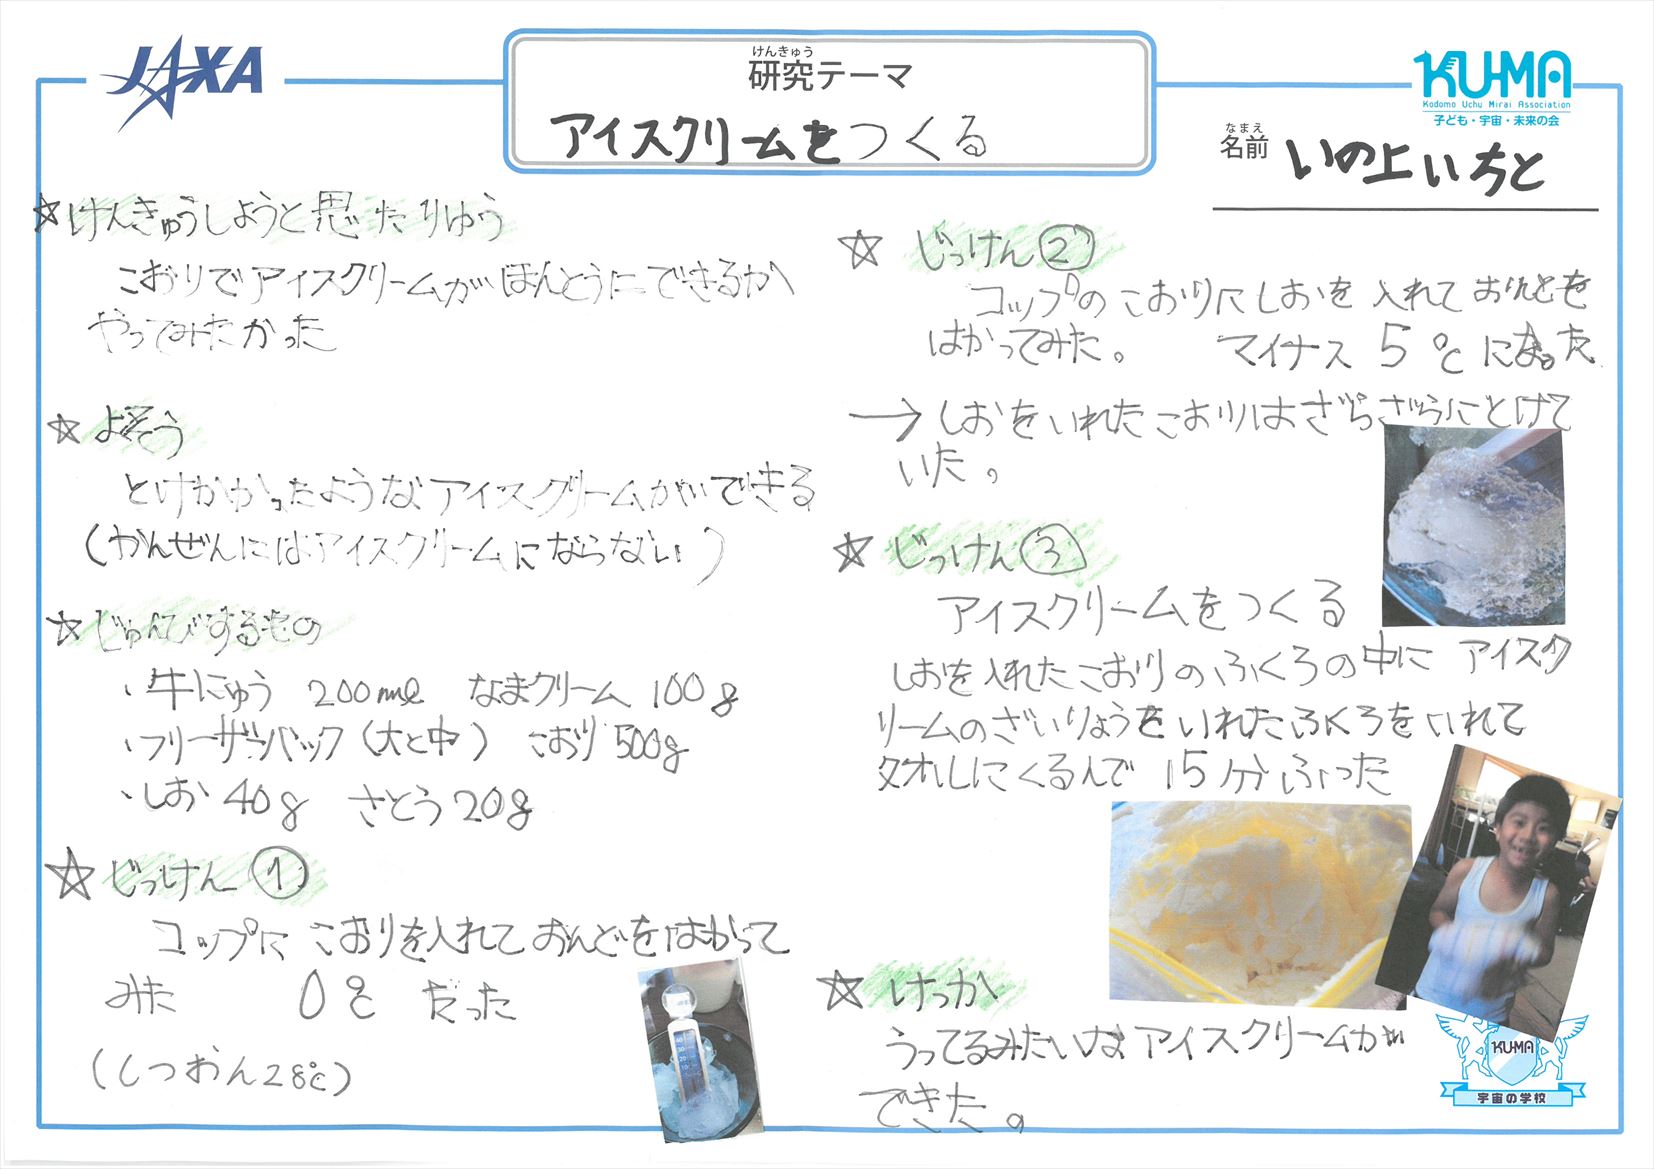 JAXA
けんきゅう
研究テーマ
アイスクリームをつくる
KU-MA
Kodomo Uchu Mirai Association
子ども・宇宙・未来の会
なまえ
名前 いの上いちと
☆けんきゅうしようと思ったりゆう
こおりでアイスクリームがほんとうにできるか
やってみたかった
☆よそう
とけかかったようなアイスクリームができる
(かんぜんにはアイスクリームにならない)
☆じゅんびするもの
・牛にゅう 200mℓ なまクリーム 100g
・フリーザーバック(大と中) こおり500g
・しお 40g さとう20g
☆じっけん①
コップにこおりを入れておんどをはかって
みた 0℃ だった
(しつおん28℃)
☆じっけん②
コップのこおりにしおを入れておんどを
はかってみた。 マイナス5℃になった
→しおをいれたこおりはざらざらにとけて
いた。
☆じっけん③
アイスクリームをつくる
しおを入れたこおりのふくろの中に アイスク
リームのざいりょうをいれたふくろをいれて
タオルにくるんで 15分ふった
☆けっか
うってるみたいなアイスクリームが
できた。
KU-MA
宇宙の学校